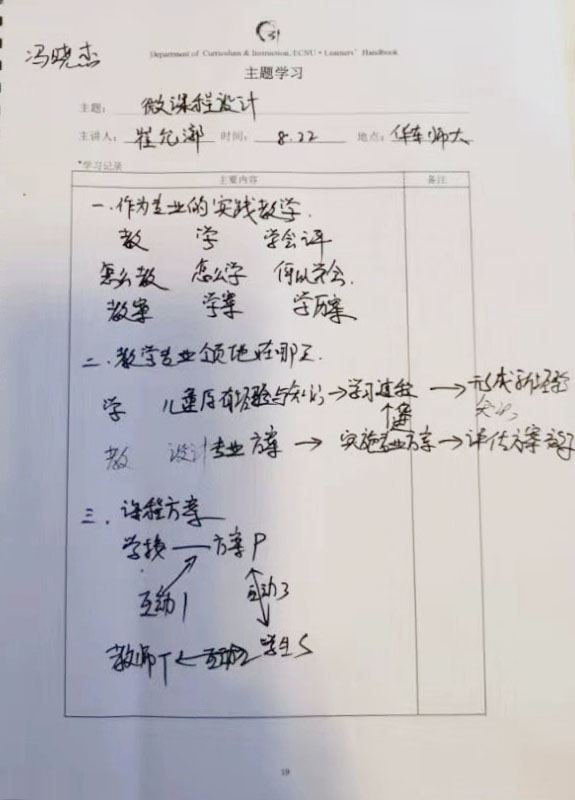 31
Department of Curriculum & Instruction, ECNU · Learners' Handbook
冯晓杰
主题学习
主题: 微课程设计
主讲人: 崔允漷 时间: 8.22 地点: 华东师大
*学习记录
主要内容 备注
一.作为专业的实践教学.
教 学 学会评
怎么教 怎么学 何以学会.
教案 学案 学历案
二.教学专业领地在哪
学 儿童原有经验与知识→学习过程→形成新经验
知识
教 设计专业方案→实施专业方案→评估方案
三.课程方案
学校——方案P
互动1 互动3
教师T←互动2 学生S
19